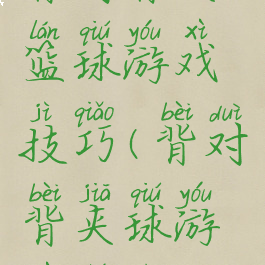 lán qiú yóu xì
篮球游戏
jì qiǎo bèi duì
技巧(背对
bèi jiā qiú yóu
背夹球游